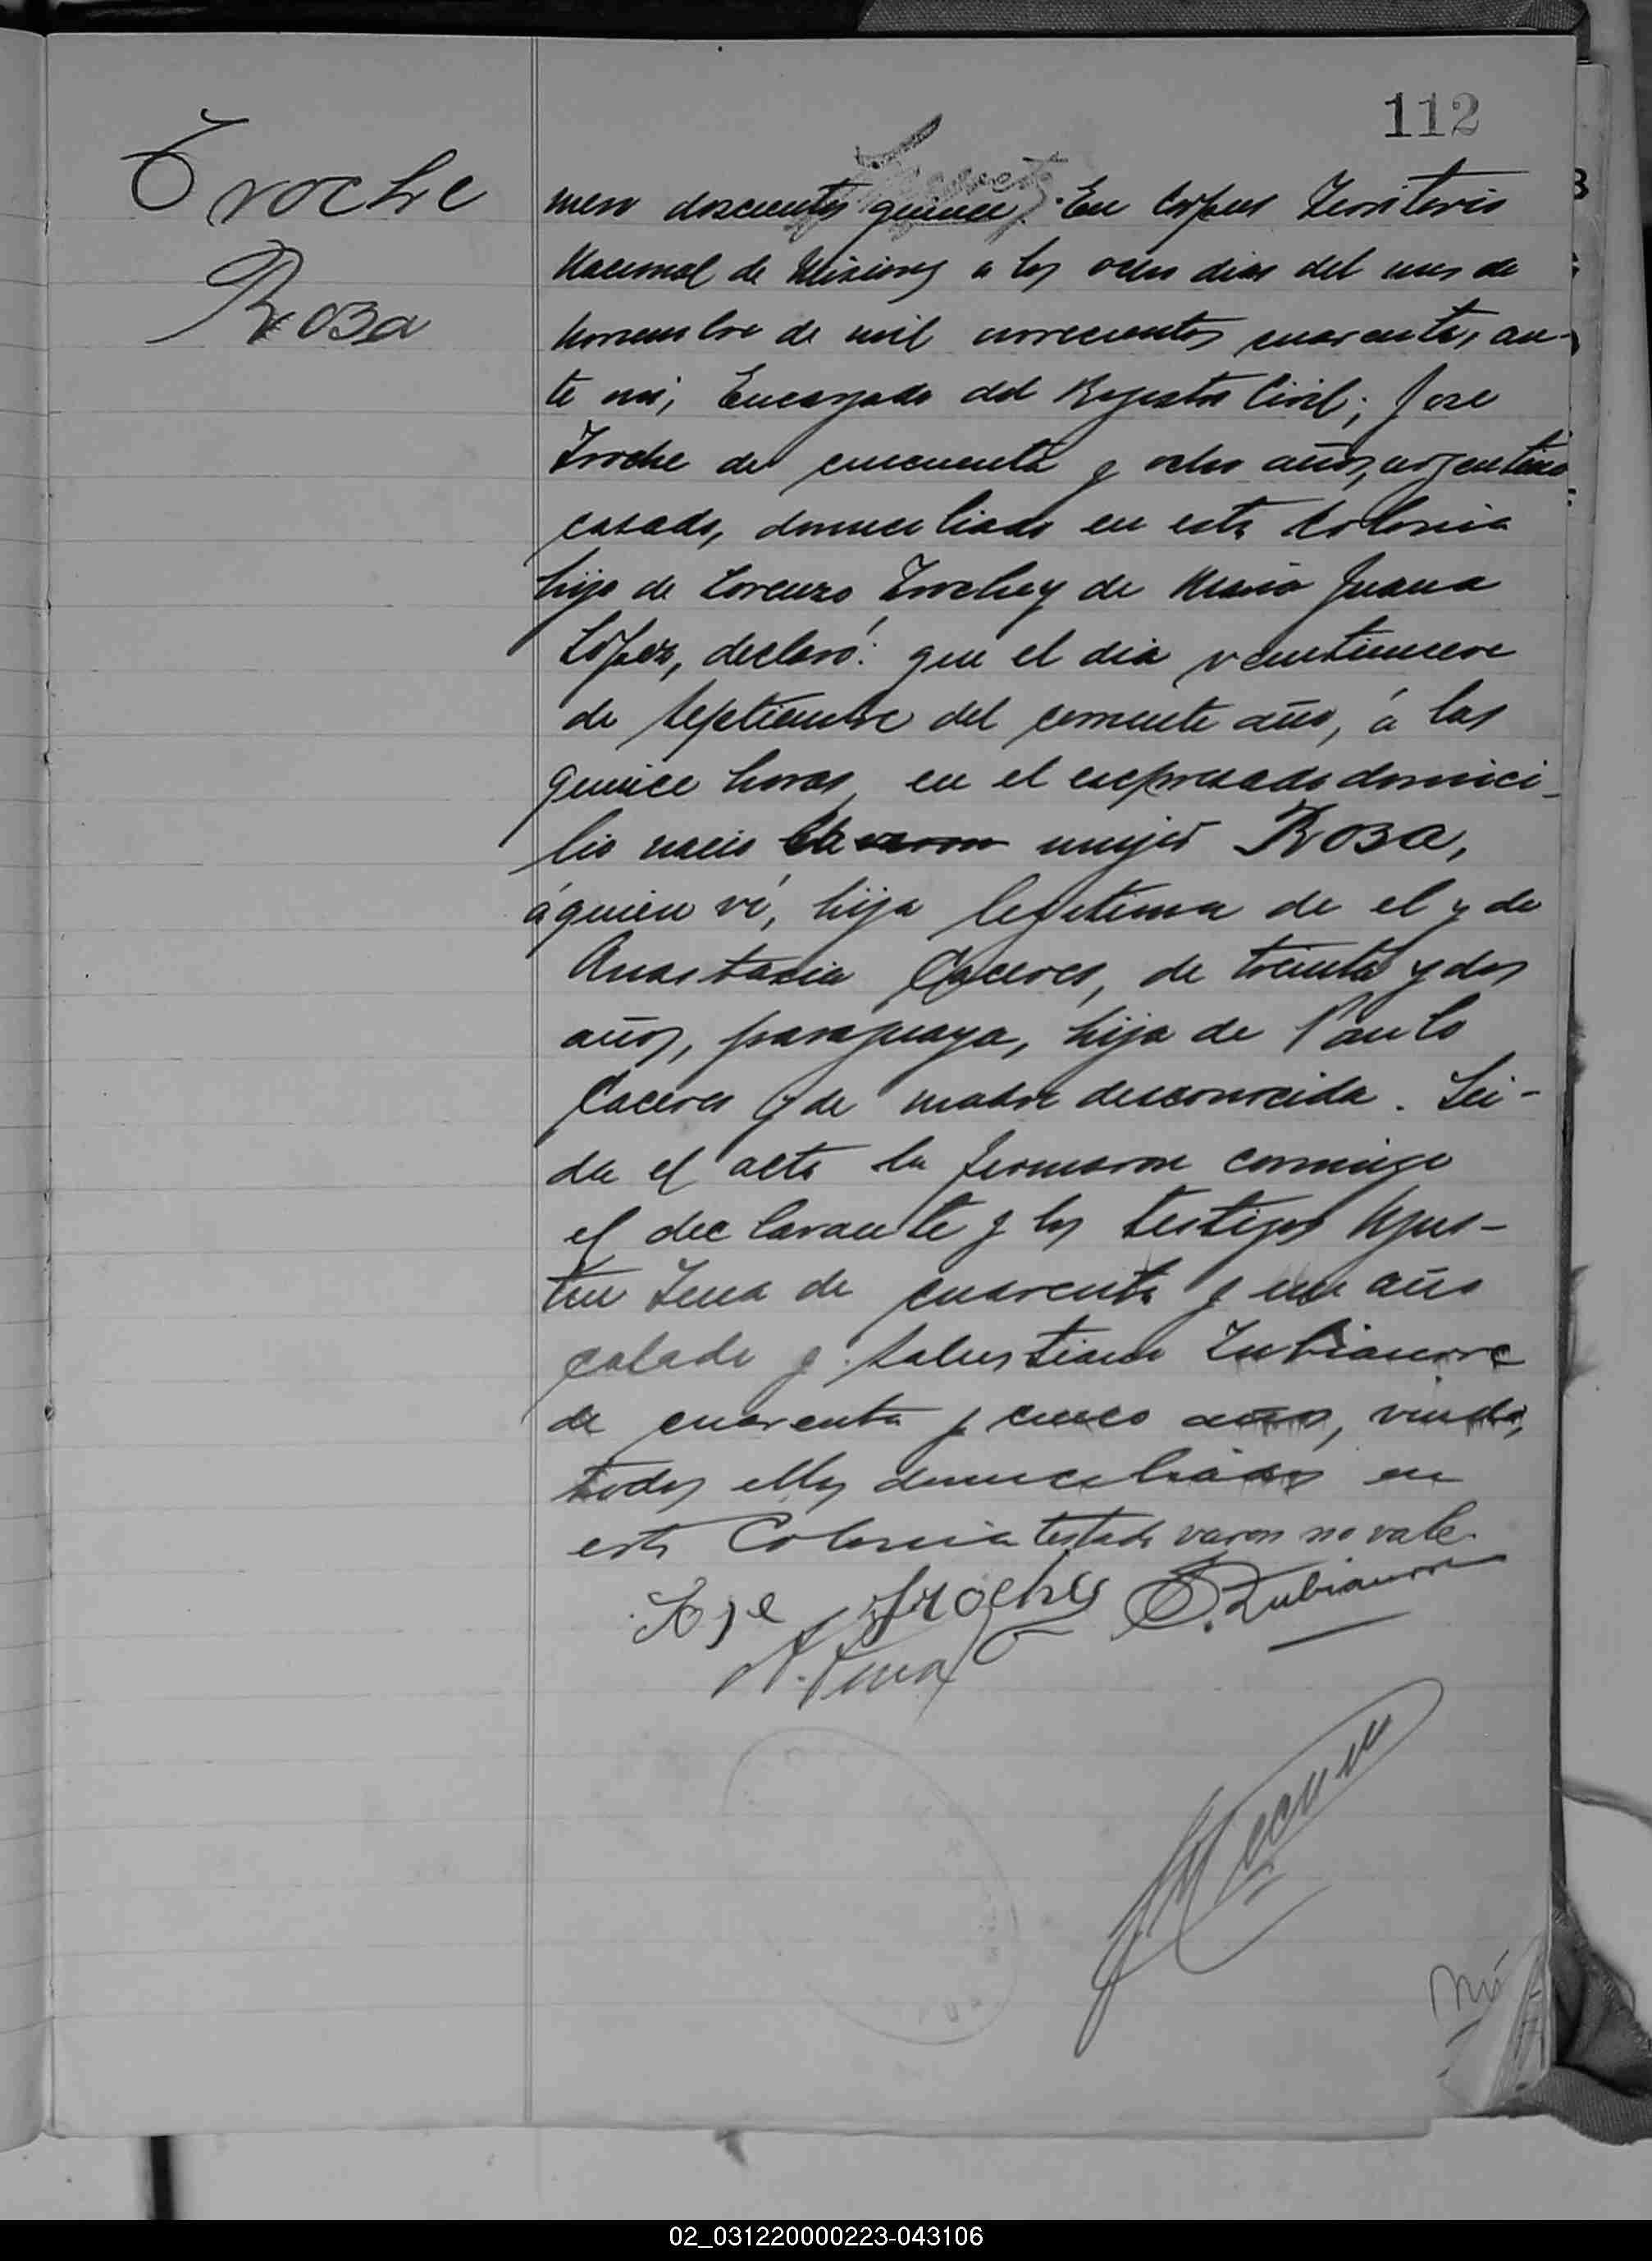 112
Troche
Rosa
mero doscientos quince. En Corpus Territorio
Nacional de Misiones a los ocho dias del mes de
Noviembre de mil novecientos cuarenta, an-
te mi, Encargado del Registro Civil; Jose
Troche de cincuenta y ocho años, argentino
casado, domiciliado en esta Colonia
hijo de Lorenzo Troche y de Maria Juana
López, declaró: que el dia veintinueve
de Septiembre del corriente año, á las
quince horas, en el expresado domici-
lio nacio varon mujer Rosa,
á quien ví, hija legitima de el y de
Anastacia Caceres, de treinta y dos
años, paraguaya, hija de Paulo
Caceres y de madre desconocida. Lei-
da el acta la firmaron conmigo
el declarante y los testigos Agus-
tin de cuarenta y un año
casado y Salustiano Zubiaurre
de cuarenta y cinco años, viudo,
todos ellos domiciliados en
esta Colonia testado varon no vale.
Jose Troche S. Zubiaurre
A.
02_031220000223-043106